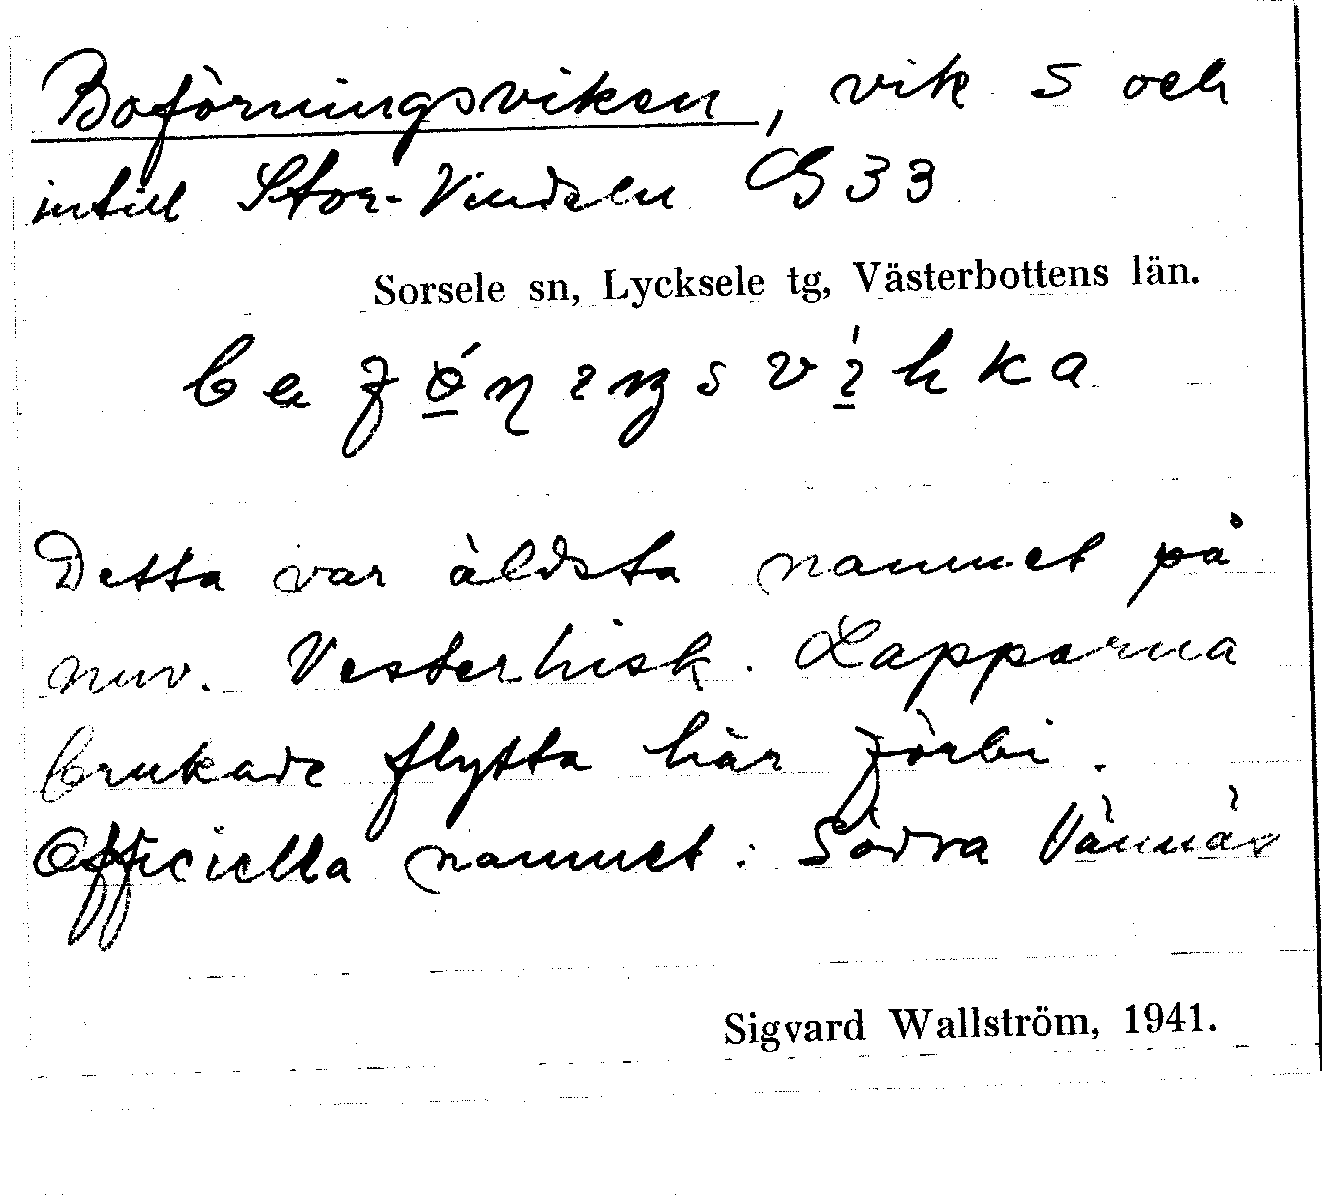 Boföringsviken, vik S och
intill Stor-Vindeln G 33
Sorsele sn, Lycksele tg, Västerbottens län.
Detta var äldsta namnet på
nuv. Vesterhisk. Lapparna
brukade flytta här förbi.
Officiella namnet: Södra Vännäs
Sigvard Wallström, 1941.